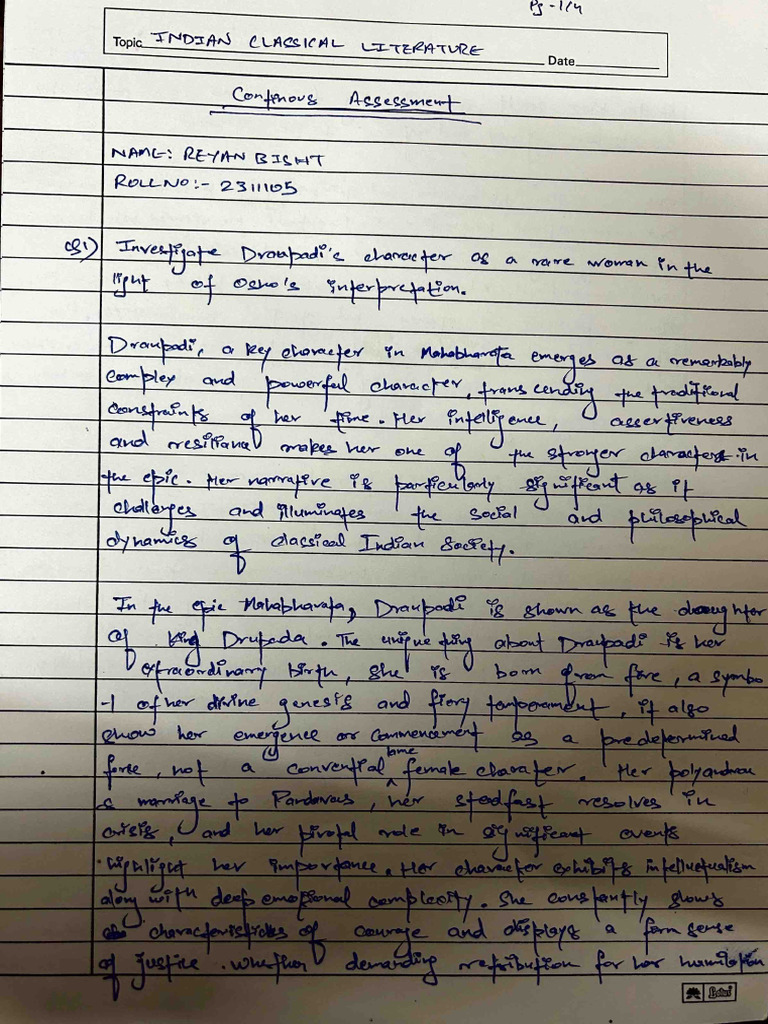 Pg - 1/4
Topic INDIAN CLASSICAL LITERATURE
Date
Continous Assessment
NAME: REYAN BISHT
ROLL NO:- 2311105
Q1) Investigate Draupadi's character as a rare woman in the
light of Osho's interpretation.
Draupadi, a key character in Mahabharata emerges as a remarkably
complex and powerful character, transcending the traditional
constraints of her time. Her intelligence, assertiveness
and makes her one of the stronger characters in
the epic. Her narrative is particularly significant as it
challenges and illuminates the social and philosophical
dynamics of classical Indian Society.
In the epic Mahabharata, Draupadi is shown as the daughter
of king Drupada. The unique thing about Draupadi is her
extraordinary birth, she is born from fire, a symbo
-l of her divine genesis and fiery temperament, it also
show her emergence or commencement as a predetermined
force, not a convential tame female charater. Her polyandrou
s marriage to Pandavas, her steadfast resolves in
crisis, and her pivotal role in significant events
highlight her importance. Her character exhibits intellectualism
along with deep emotional complexity. She constantly shows
characteristicks of courage and displays a firm sense
of justice. Whether demanding retribution for her humiliation